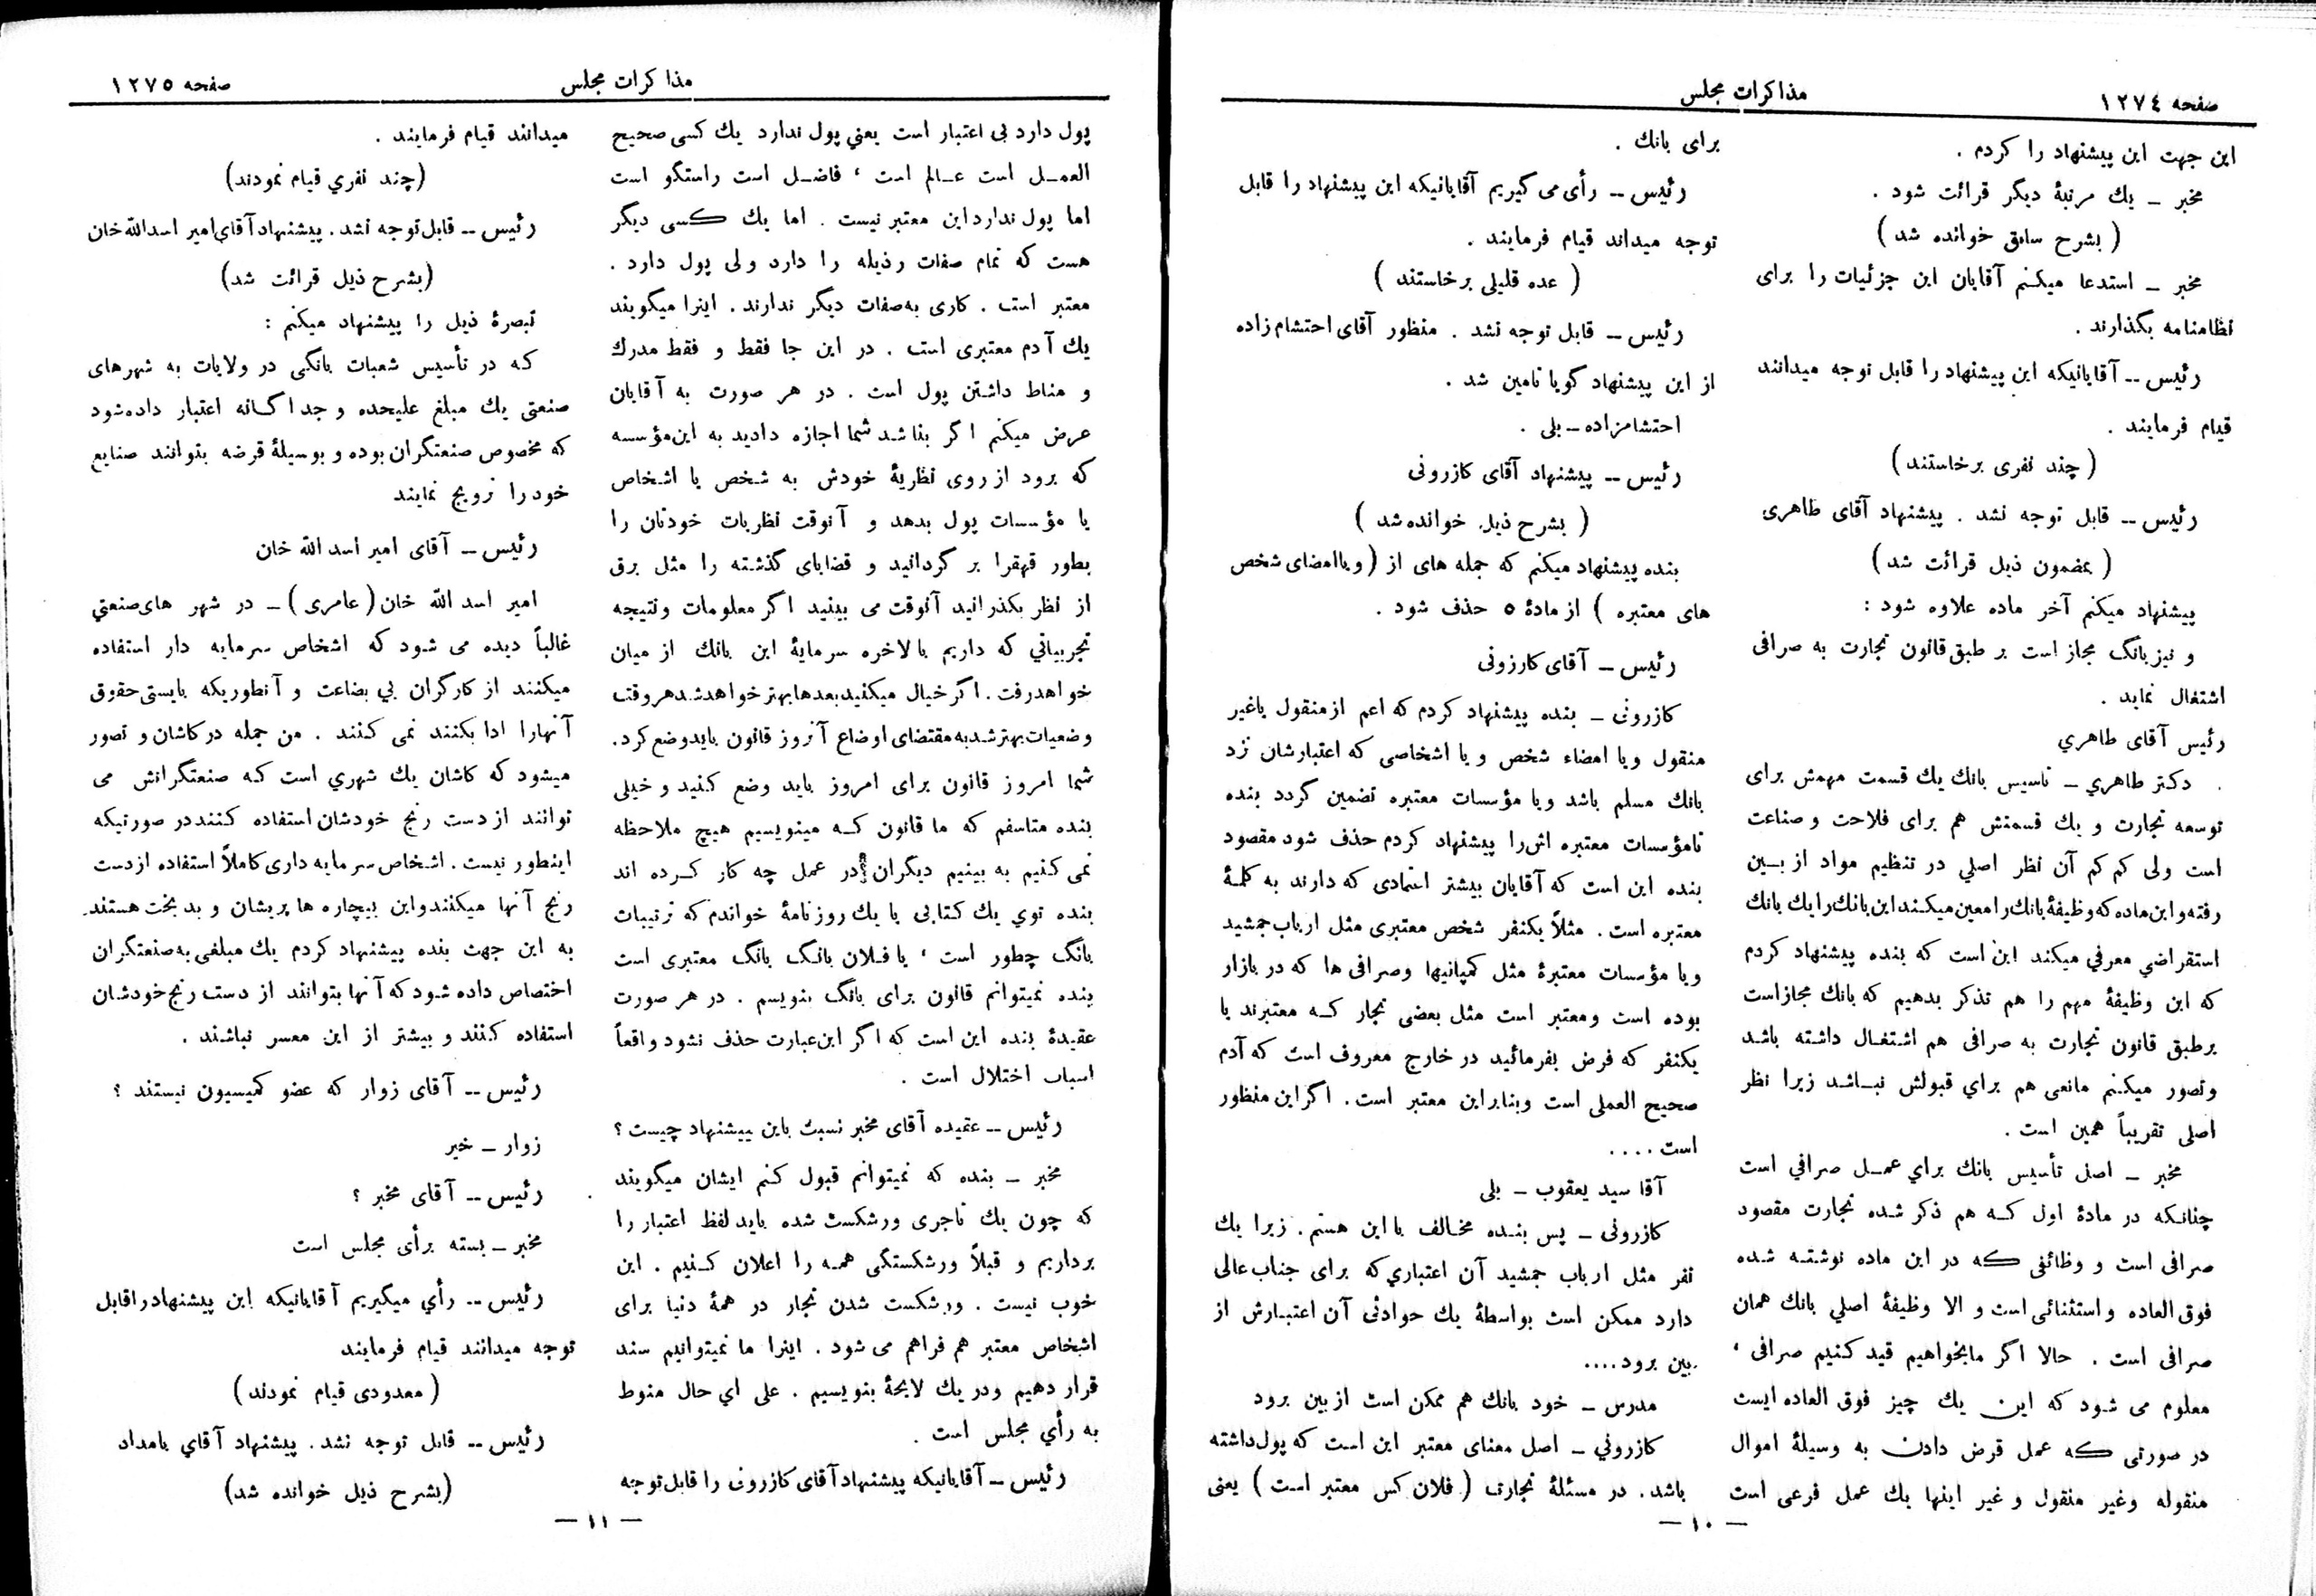 صفحه ١٢٧٤
مذاکرات مجلس
این جهت این پیشنهاد را کردم .
مخبر ــ یك مرتبهٔ دیگر قرائت شود .
( بشرح سابق خوانده شد )
مخبر ــ استدعا میکنم آقایان این جزئیات را برای
نظامنامه بگذارند .
رئیس ــ آقایانیکه این پیشنهاد را قابل توجه میدانند
قیام فرمایند .
( چند نفری برخاستند )
رئیس ــ قابل توجه نشد . پیشنهاد آقای طاهری
( بمضمون ذیل قرائت شد )
پیشنهاد میکنم آخر ماده علاوه شود :
و نیز بانگ مجاز است بر طبق قانون تجارت به صرافی
اشتغال نماید .
رئیس آقای طاهري
دکتر طاهري ــ تاسیس بانك یك قسمت مهمش برای
توسعه تجارت و یك قسمتش هم برای فلاحت و صناعت
است ولی کم کم آن نظر اصلي در تنظیم مواد از بــین
رفته و این ماده که وظیفهٔ بانك را معین میکـند این بانك را یك بانك
استقراضي معرفي میکند این است که بنده پیشنهاد کردم
که این وظیفهٔ مهم را هم تذکر بدهیم که بانك مجاز است
برطبق قانون تجارت به صرافی هم اشتغـال داشته باشد
وتصور میکـنم مانعی هم براي قبولش نبـاشـد زیرا نظر
اصلی تقریباً همین است .
مخبر ــ اصل تأسیس بانك براي عمــل صرافي است
چنانـکه در مادهٔ اول کــه هم ذکر شـده تجارت مقصود
صرافی است و وظائفی کـه در این ماده نوشتـه شده
فوق العاده و استثنائی است و الا وظیفهٔ اصلي بانك همان
صرافی است . حالا اگر مابخواهیم قید کـنیم صرافی ،
معلوم می شود که این یك چیز فوق العاده ایست
در صورتی کـه عمل قرض دادن به وسیلهٔ اموال
منقوله وغیر منقول و غیر اینها یك عمل فرعی است
برای بانك .
رئیس ــ رأی می گیریم آقایانیکه این پیشنهاد را قابل
توجه میداند قیام فرمایند .
( عده قلیلی برخاستند )
رئیس ــ قابل توجه نشد . منظور آقای احتشام زاده
از این پیشنهاد گویا تامین شد .
احتشامزاده ــ بلی .
رئیس ــ پیشنهاد آقای کازرونی
( بشرح ذیل خوانده شد )
بنده پیشنهاد میکنم که جمله های از ( و یاامضای شخص
های معتبره ) از مادهٔ ٥ حذف شود .
رئیس ــ آقای کارزونی
کازرونی ــ بنده پیشنهاد کردم که اعم از منقول یاغیر
منقول ویا امضاء شخص و یا اشخاصی که اعتبارشان نزد
بانك مسلم باشد ویا مؤسسات معتبره تضمین گردد بنده
تامؤسسات معتبره اش را پیشنهاد کردم حذف شود مقصود
بنده این است که آقایان بیشتر اعتمادی که دارند به کلمهٔ
معتبره است . مثلاً یکنفر شخص معتبری مثل ارباب جمشید
ویا مؤسسات معتبرهٔ مثل کمپانیها وصرافی ها که در بازار
بوده است ومعتبر است مثل بعضی تجار کــه معتبرند یا
یکنفر که فرض بفرمائید در خارج معروف است که آدم
صحیح العملی است وبنابراین معتبر است . اگر این منظور
است . . . .
آقا سید یعقوب ــ بلی
کازرونی ــ پس بنـده مخـالف با این هستم . زیرا یك
نفر مثل ارباب جمشید آن اعتباري که برای جناب عالی
دارد ممکن است بواسطهٔ یك حوادثی آن اعتبـارش از
بین برود . . . .
مدرس ــ خود بانك هم ممکن است از بین برود
کازروني ــ اصل معنای معتبر این است که پول داشته
باشد . در مسئلهٔ تجارت ( فلان کس معتبر است ) یعنی
ــ ١٠ ــ
مذاکرات مجلس
صفحه ١٢٧٥
پول دارد بی اعتبار است یعني پول ندارد یك کسی صحیح
العمـل است عـالم است ، فاضـل است راستگو است
اما پول ندارد این معتبر نیست . اما یك کـسی دیگر
هست که تمام صفات رذیله را دارد ولی پول دارد .
معتبر است . کاری به صفات دیگر ندارند . اینرا میگویند
یك آدم معتبری است . در این جا فقط و فقط مدرك
و مناط داشتن پول است . در هر صورت به آقایان
عرض میکنم اگر بنا شد شما اجازه دادید به این مؤسسه
که برود از روی نظریهٔ خودش به شخص یا اشخاص
یا مؤسسات پول بدهد و آنوقت نظریات خودتان را
بطور قهقرا بر گردانید و قضایای گذشته را مثل برق
از نظر بکذرانید آنوقت می بینید اگر معلومات ونتیجه
تجربیاتي که داریم بالاخره سرمایهٔ این بانك از میان
خواهدرفت . اگر خیال میکنید بعدها بهتر خواهدشد هروقت
وضعیات بهتر شد به مقتضای اوضاع آنروز قانون باید وضع کرد .
شما امروز قانون برای امروز باید وضع کنید و خیلی
بنده متاسفم که ما قانون کــه مینویسیم هیچ ملاحظه
نمی کنیم به بینیم دیگران در عمل چه کار کـرده اند
بنده توي یك کتابی یا یك روزنامهٔ خواندم که ترتیبات
بانگ چطور است ، یا فـلان بانگ بانگ معتبری است
بنده نمیتوانم قانون برای بانگ بنویسم . در هر صورت
عقیدهٔ بنده این است که اگر این عبارت حذف نشود واقعاً
اسباب اختلال است .
رئیس ــ عقیده آقای مخبر نسبت باین پیشنهاد چیست ؟
مخبر ــ بنده که نمیتوانم قبول کنم ایشان میگویند
که چون یك تاجری ورشکست شده باید لفظ اعتبار را
برداریم و قبلاً ورشکستگی همـه را اعلان کـنیم . این
خوب نیست . ورشکست شدن تجار در همهٔ دنیا برای
اشخاص معتبر هم فراهم می شود . اینرا ما نمیتوانیم سند
قرار دهیم ودر یك لایحهٔ بنویسیم . علی اي حال منوط
به رأي مجلس است .
رئیس ــ آقایانیکه پیشنهاد آقای کازرونی را قابل توجه
میدانند قیام فرمایند .
(چند نفري قیام نمودند)
رئیس ــ قابل توجه نشد . پیشنهاد آقاي امیر اسدالله خان
(بشرح ذیل قرائت شد)
تبصرهٔ ذیل را پیشنهاد میکنم :
کـه در تأسیس شعبات بانگی در ولایات به شهرهای
صنعتی یك مبلغ علیحده و جداگـانه اعتبار داده شود
که مخصوص صنعتگران بوده و بوسیلهٔ قرضه بتوانند صنایع
خود را ترویج نمایند
رئیس ــ آقای امیر اسد الله خان
امیر اسد الله خان (عامری) ــ در شهر های صنعتي
غالباً دیده می شود که اشخاص سرمایه دار استفاده
میکنند از کارگران بي بضاعت و آنطوریکه بایستی حقوق
آنهارا ادا بکنند نمی کنند . من جمله در کاشان و تصور
میشود که کاشان یك شهري است کـه صنعتگرانش می
توانند از دست رنج خودشان استفاده کـنند در صورتیکه
اینطور نیست . اشخاص سرمایه داری کاملاً استفاده از دست
رنج آنها میکنند و این بیچاره ها پریشان و بدبخت هستند
به این جهت بنده پیشنهاد کردم یك مبلغی به صنعتگران
اختصاص داده شود که آنها بتوانند از دست رنج خودشان
استفاده کنند و بیشتر از این معسر نباشند .
رئیس ــ آقای زوار که عضو کمیسیون نیستند ؟
زوار ــ خیر
رئیس ــ آقای مخبر ؟
مخبر ــ بسته برأی مجلس است
رئیس ــ رأي میگیریم آقایانیکه این پیشنهاد راقابل
توجه میدانند قیام فرمایند
( معدودی قیام نمودند )
رئیس ــ قابل توجه نشد . پیشنهاد آقاي بامداد
(بشرح ذیل خوانده شد)
ــ ١١ ــ